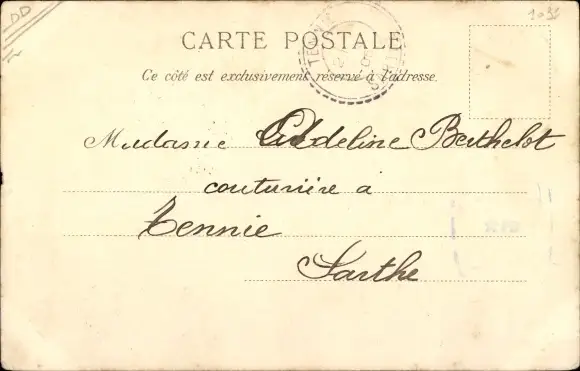 DD
1096
CARTE POSTALE
Ce côté est exclusivement réservé à l'adresse.
Madame Adeline Berthelot
couturière a
Tennie
Sarthe